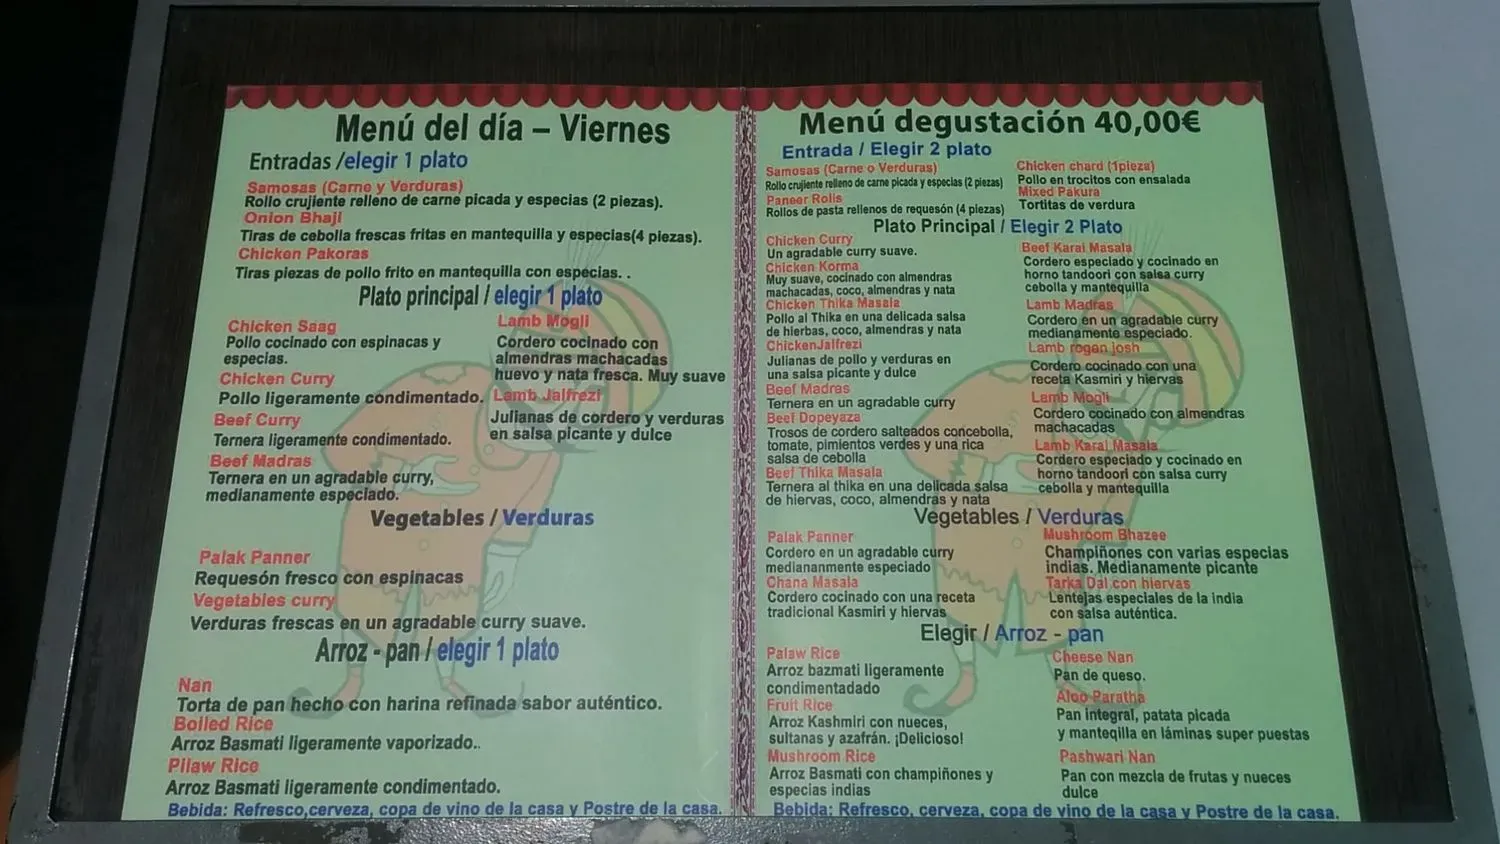 Menú del día – Viernes
Entradas /elegir 1 plato
Samosas (Carne y Verduras)
Rollo crujiente relleno de carne picada y especias (2 piezas).
Onion Bhaji
Tiras de cebolla frescas fritas en mantequilla y especias(4 piezas).
Chicken Pakoras
Tiras piezas de pollo frito en mantequilla con especias. .
Plato principal / elegir 1 plato
Chicken Saag
Pollo cocinado con espinacas y
especias.
Chicken Curry
Pollo ligeramente condimentado.
Beef Curry
Ternera ligeramente condimentado.
Beef Madras
Ternera en un agradable curry,
medianamente especiado.
Lamb Mogli
Cordero cocinado con
almendras machacadas
huevo y nata fresca. Muy suave
Lamb Jalfrezi
Julianas de cordero y verduras
en salsa picante y dulce
Vegetables / Verduras
Palak Panner
Requesón fresco con espinacas
Vegetables curry
Verduras frescas en un agradable curry suave.
Arroz - pan / elegir 1 plato
Nan
Torta de pan hecho con harina refinada sabor auténtico.
Boiled Rice
Arroz Basmati ligeramente vaporizado..
Pilaw Rice
Arroz Basmati ligeramente condimentado.
Bebida: Refresco,cerveza, copa de vino de la casa y Postre de la casa.
Menú degustación 40,00€
Entrada / Elegir 2 plato
Samosas (Carne o Verduras)
Rollo crujiente relleno de carne picada y especias (2 piezas)
Paneer Rolls
Rollos de pasta rellenos de requesón (4 piezas)
Chicken chard (1pieza)
Pollo en trocitos con ensalada
Mixed Pakura
Tortitas de verdura
Plato Principal / Elegir 2 Plato
Chicken Curry
Un agradable curry suave.
Chicken Korma
Muy suave, cocinado con almendras
machacadas, coco, almendras y nata
Chicken Thika Masala
Pollo al Thika en una delicada salsa
de hierbas, coco, almendras y nata
ChickenJalfrezi
Julianas de pollo y verduras en
una salsa picante y dulce
Beef Madras
Ternera en un agradable curry
Beef Dopeyaza
Trosos de cordero salteados concebolla,
tomate, pimientos verdes y una rica
salsa de cebolla
Beef Thika Masala
Ternera al thika en una delicada salsa
de hiervas, coco, almendras y nata
Beef Karai Masala
Cordero especiado y cocinado en
horno tandoori con salsa curry
cebolla y mantequilla
Lamb Madras
Cordero en un agradable curry
medianamente especiado.
Lamb rogen josh
Cordero cocinado con una
receta Kasmiri y hiervas
Lamb Mogli
Cordero cocinado con almendras
machacadas
Lamb Karai Masala
Cordero especiado y cocinado en
horno tandoori con salsa curry
cebolla y mantequilla
Vegetables / Verduras
Palak Panner
Cordero en un agradable curry
mediananmente especiado
Chana Masala
Cordero cocinado con una receta
tradicional Kasmiri y hiervas
Mushroom Bhazee
Champiñones con varias especias
indias. Medianamente picante
Tarka Dal con hiervas
Lentejas especiales de la india
con salsa auténtica.
Elegir / Arroz - pan
Palaw Rice
Arroz bazmati ligeramente
condimentadado
Fruit Rice
Arroz Kashmiri con nueces,
sultanas y azafrán. ¡Delicioso!
Mushroom Rice
Arroz Basmati con champiñones y
especias indias
Cheese Nan
Pan de queso.
Aloo Paratha
Pan integral, patata picada
y manteqilla en láminas super puestas
Pashwari Nan
Pan con mezcla de frutas y nueces
dulce
Bebida: Refresco, cerveza, copa de vino de la casa y Postre de la casa.